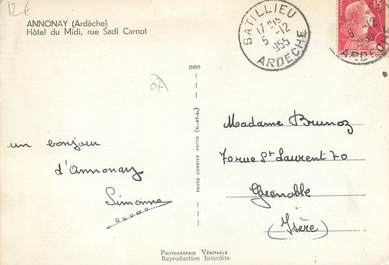 12€
ANNONAY (Ardèche)
Hôtel du Midi, rue Sadi Carnot
SATILLIEU
5 -12
1955
ARDECHE
un bonjour
d'Annonay
Simonne
Madame Brunoz
70 rue St Laurent 70
Grenoble
(Isère)
PHOTOGRAPHIE VÉRITABLE
Reproduction Interdite